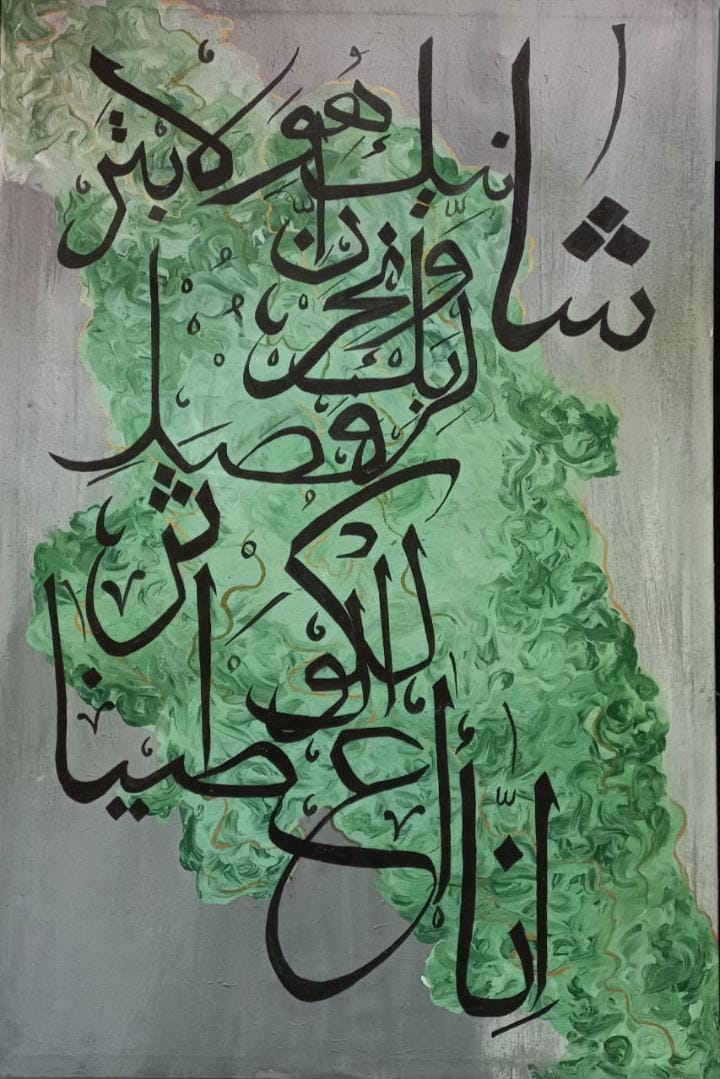 إنّا أعطينا
الكوثر
فصل
لربك ونحر
إنّ
شانيك هو لابتر